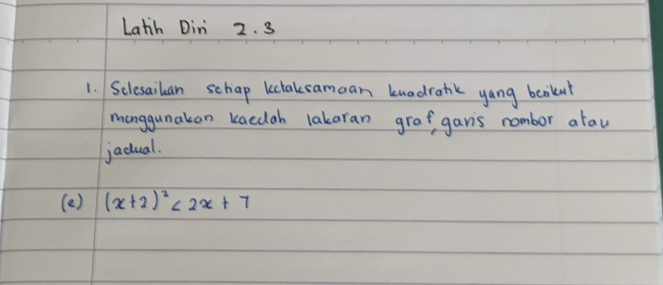 Latih Diri 2.3
1. Selesaikan setiap ketaksamaan kuadratik yang berikut
menggunakan kaedah lakaran graf, garis nombor atau
jadual.
(e) (x+2)² < 2x + 7